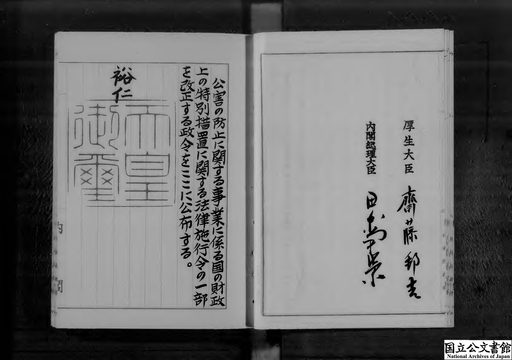 公害の防止に関する事業に係る国の財政
上の特別措置に関する法律施行令の一部
を改正する政令をここに公布する。
裕仁
天皇
御璽
厚生大臣 齋藤邦吉
内閣総理大臣 田中角榮
国立公文書館
National Archives of Japan